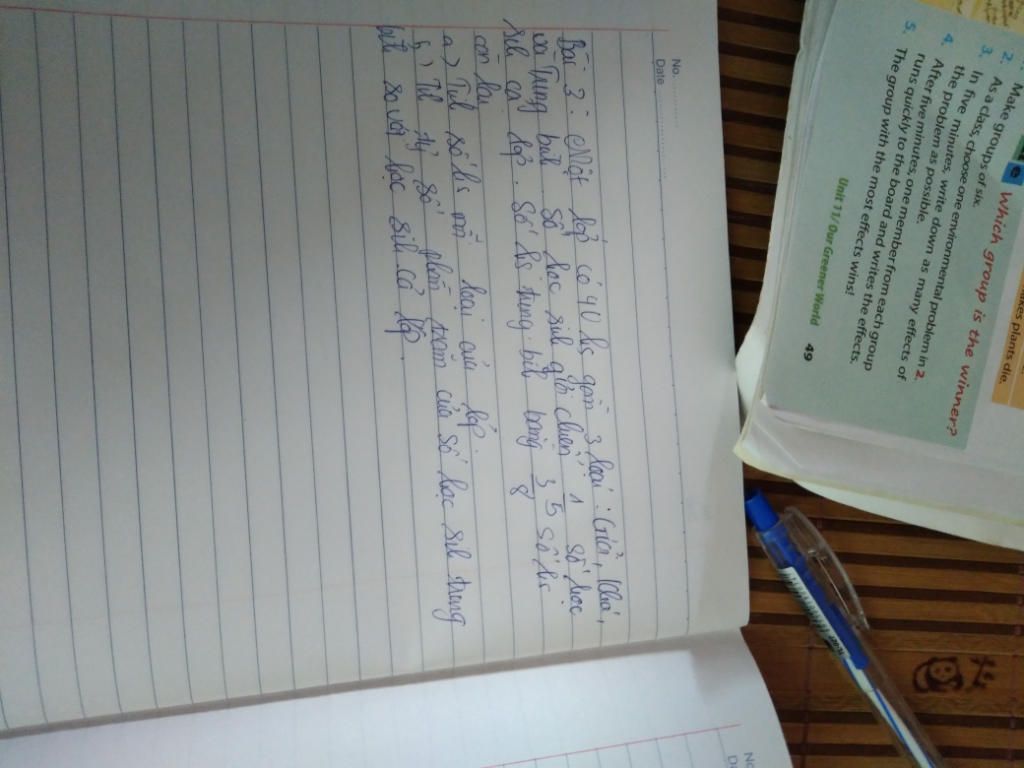 No.
Date
Bài 3: Một lớp có 40 hs gồm 3 loại: Giỏi, Khá,
và Trung bình số học sinh giỏi chiếm 1/5 số học
sinh cả lớp. Số hs trung bình bằng 3/8 số hs
còn lại
a) Tính số hs mỗi loại của lớp.
b) Tính tỷ số phần trăm của số học sinh trung
bình so với học sinh cả lớp
Which group is the winner?
Make groups of six.
2. As a class, choose one environmental problem in 2.
3. In five minutes, write down as many effects of
the problem as possible.
4. After five minutes, one member from each group
runs quickly to the board and writes the effects.
5. The group with the most effects wins!
Unit 11/Our Greener World
49
plants die.
No.